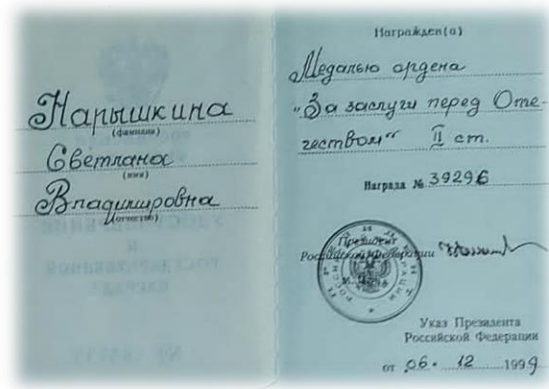 Нарышкина
(фамилия)
Светлана
(имя)
Владимировна
(отчество)
Награжден(а)
Медалью ордена
"За заслуги перед Оте-
чеством" II ст.
Награда № 39296
Президент
Российской Федерации
Указ Президента
Российской Федерации
от 06. 12 1999